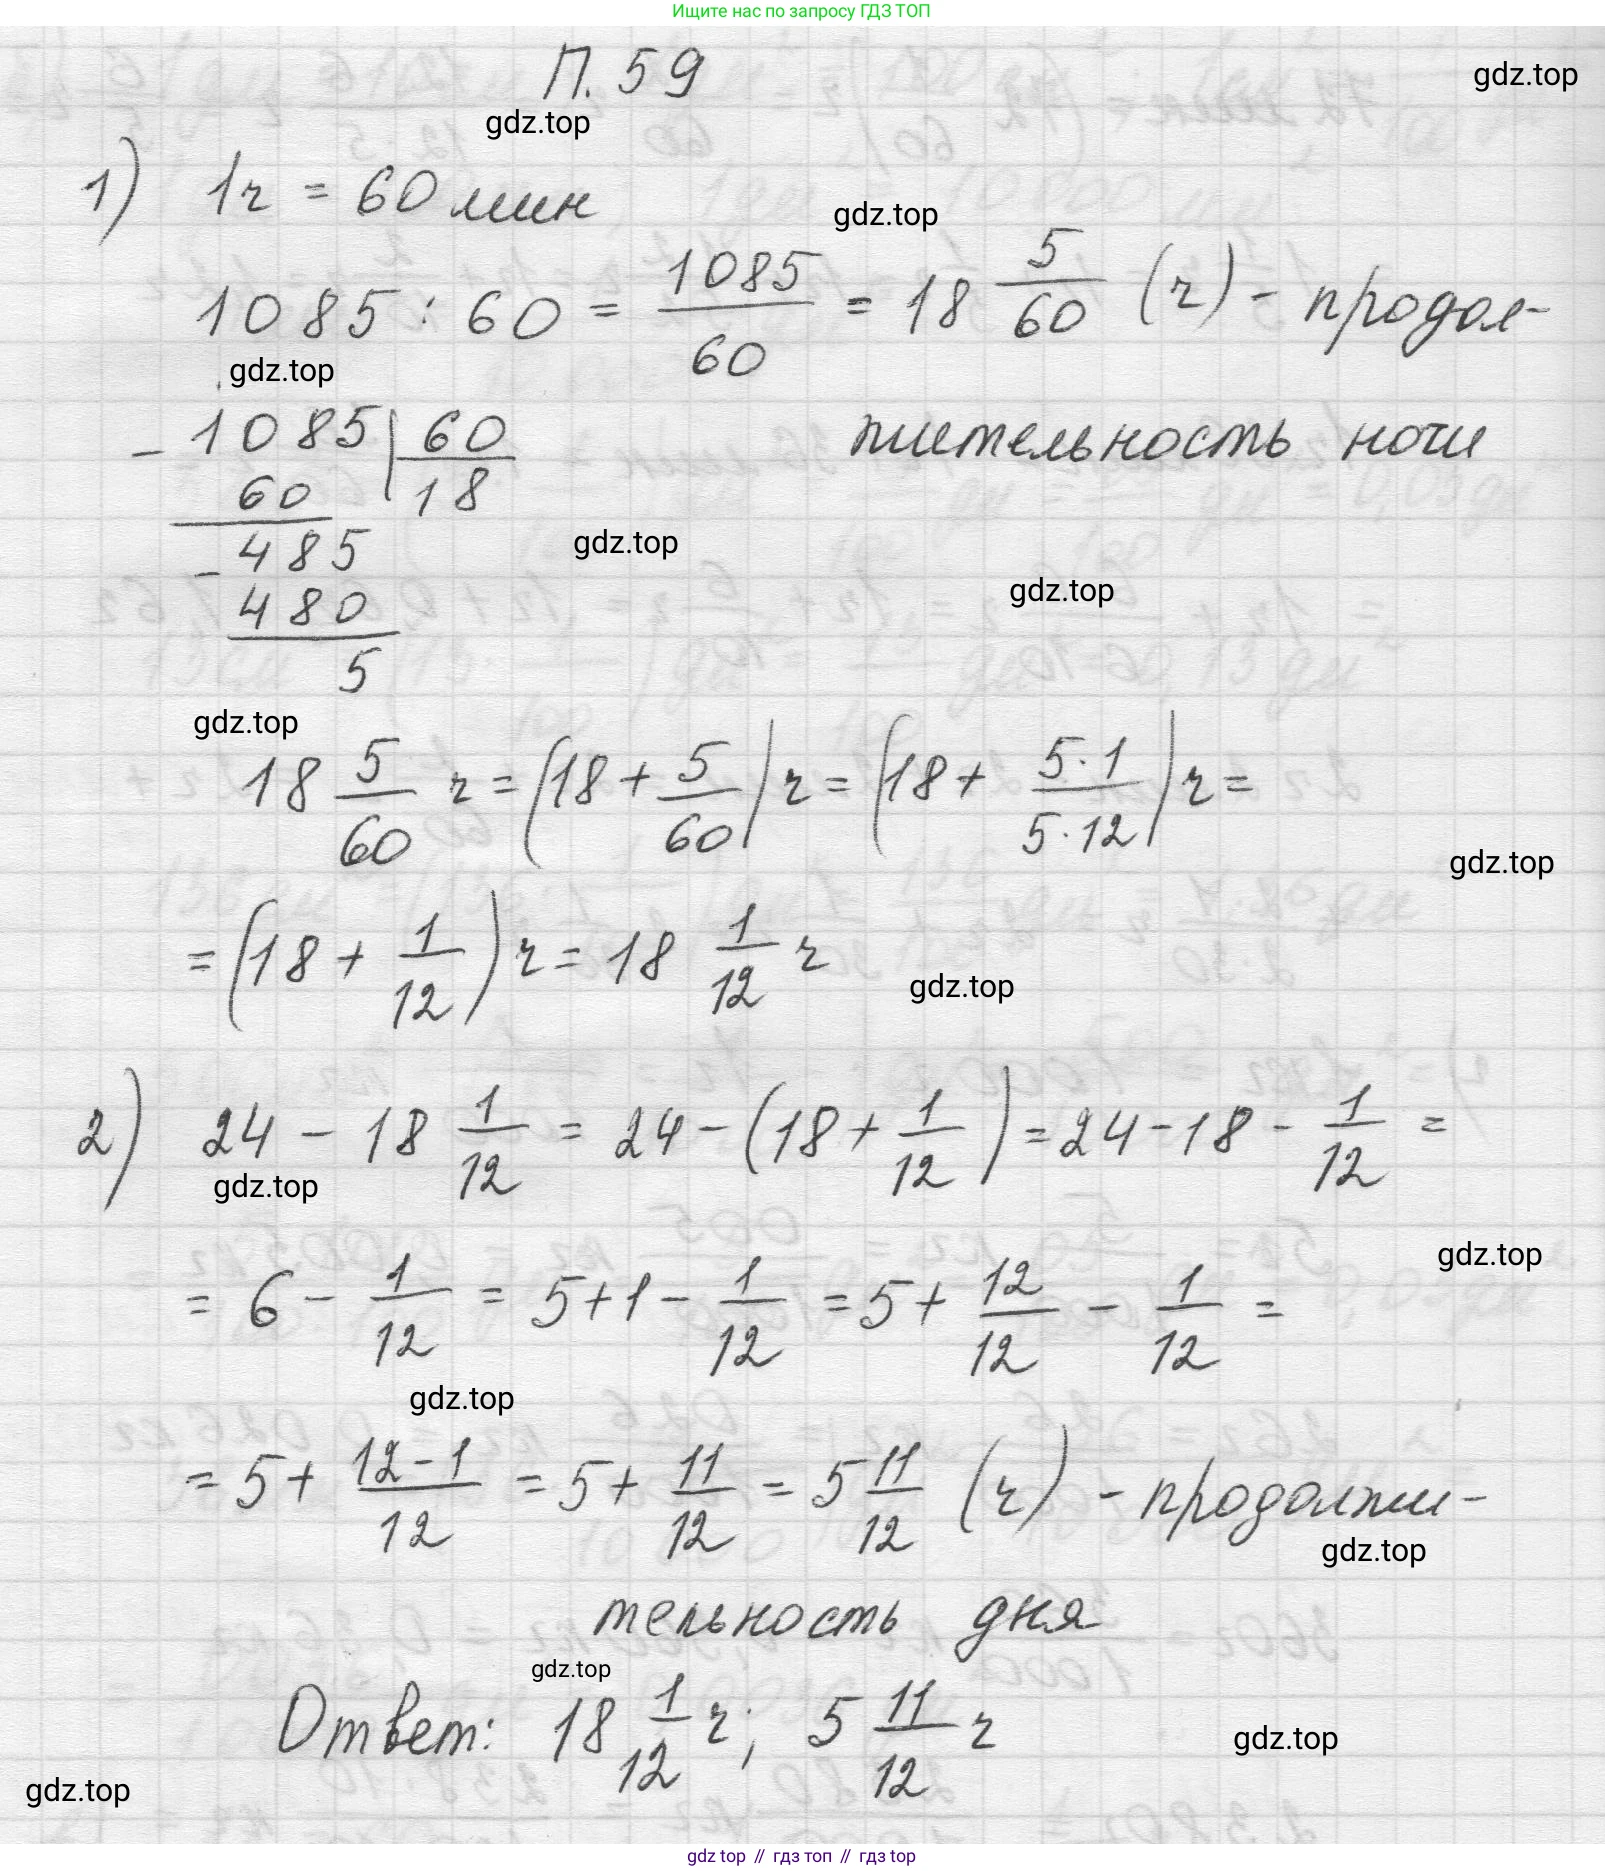 Ищите нас по запросу ГДЗ ТОП
П. 59
gdz.top
gdz.top
1) 1 ч = 60 мин
gdz.top
1085 : 60 = 1085/60 = 18 5/60 (ч) - продол-
gdz.top
жительность ночи
- 1085 | 60
60 | 18
- 485
gdz.top
480
gdz.top
5
gdz.top
18 5/60 ч = (18 + 5/60) ч = (18 + 5·1/5·12) ч =
gdz.top
= (18 + 1/12) ч = 18 1/12 ч
gdz.top
2) 24 - 18 1/12 = 24 - (18 + 1/12) = 24 - 18 - 1/12 =
gdz.top
gdz.top
= 6 - 1/12 = 5 + 1 - 1/12 = 5 + 12/12 - 1/12 =
gdz.top
= 5 + 12-1/12 = 5 + 11/12 = 5 11/12 (ч) - продолжи-
gdz.top
тельность дня
gdz.top
Ответ: 18 1/12 ч; 5 11/12 ч
gdz.top
gdz.top
gdz top // гдз топ // гдз top